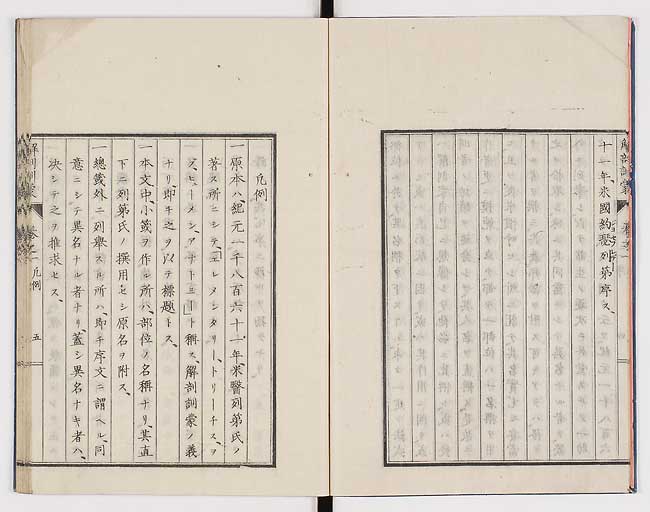 解剖訓蒙
十一年、米國約瑟列第序ス、
凡例
一原本ハ、紀元一千八百六十一年、米醫列第氏ノ
著ス所ニシテ、エレメンタリー、トリーチス、ヲ
ン、ヒーメン、アナトミー、ト稱ス、解剖訓蒙ノ義
ナリ、即キ之ヲ以テ標題トス、
一本文中、小箋ヲ作ル所ハ、部位ノ名稱ナリ、其直
下ニ列第氏ノ撰用セシ原名ヲ附ス、
一總箋外ニ列擧スル所ハ、即チ序文ニ謂ヘル、同
意ニシテ異名ナル者ナリ、蓋シ異名ナキ者ハ、
決シテ之ヲ推求セス、
解剖訓蒙 卷之一 凡例 五